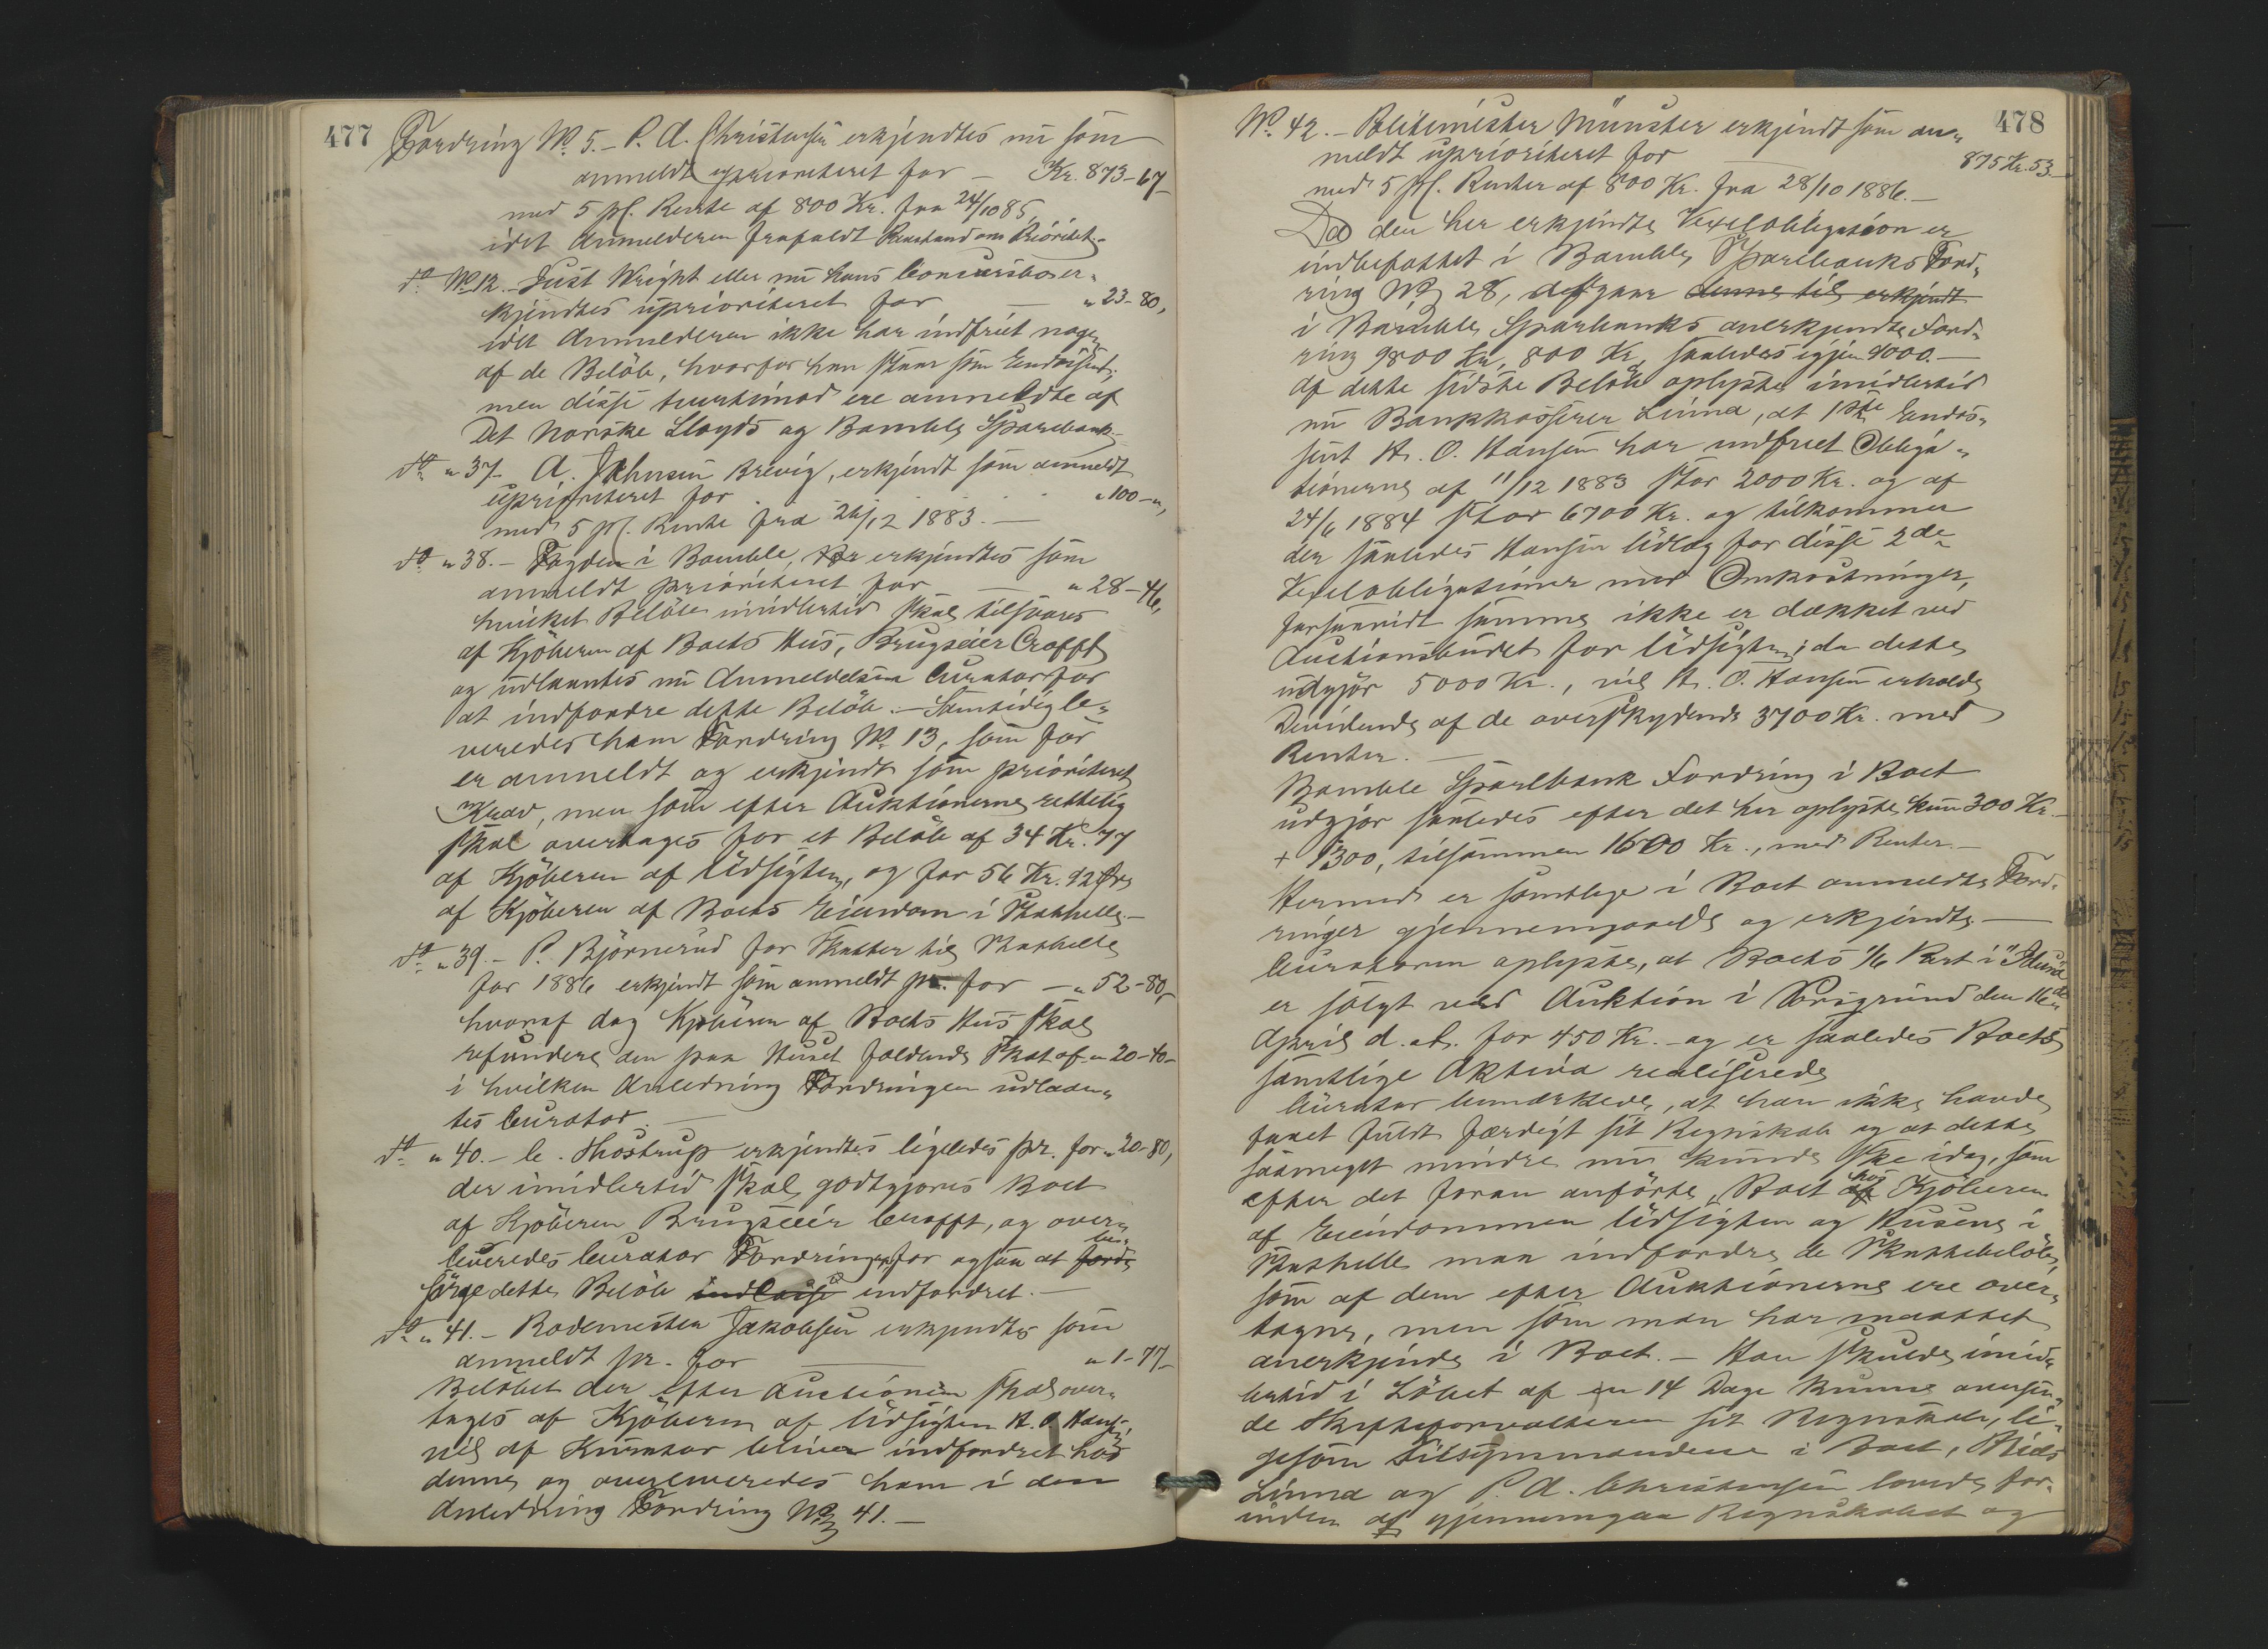 477
Fordring No. 5. - P. A. Christensen erkjendtes nu som
anmeldt uprioriteret for - Kr. 873-67
med 5 pCt. Rente af 800 Kr. fra 24/10 85,
idet Anmelderen frafaldt Paastand om Prioritet.-
do No 12. Just Wright eller nu hans Concursbo er-
kjendtes uprioriteret for - " 23-80,
idet Anmelderen ikke har indfriet noget
af de Beløb, hvorfor han staar som Endossent,
men disse tvertimod ere anmeldte af
Det Norske Lloyds og Bamble Sparebank.-
do " 37. A. Johnsen Brevig, erkjendt som anmeldt
uprioriteret for . . . . " 100-",
med 5 pCt. Rente fra 26/12 1883. -
do " 38. - Fogden i Bamble, erkjendtes som
anmeldt prioriteret for - " 28-46,
hvilket Beløb imidlertid skal tilsvares
af Kjøberen af Boets Hus, Brugseier Crofft
og udlaantes nu Anmeldelsen Curator for
at indfordre dette Beløb. - Samtidig le-
veredes ham Fordring No. 13, som før
er anmeldt og erkjendt som prioriteret
Krav, men som efter Auktionerne rettelig
skal overtages for et Beløb af 34 Kr. 77
af Kjøberen af Udsigten, og for 56 Kr. 92 Øre
af Kjøberen af Boets Eiendom i Stathelle.-
do " 39. - P. Bjørnerud for Skatter til Stathelle
for 1886 erkjendt som anmeldt pr. for - " 52-80,
hvoraf dog Kjøberen af Boets Hus skal
refundere den paa Huset faldende Skat af " 20-40-
i hvilken Anledning Fordringen udlaan-
tes Curator. -
do " 40. - C. Hostrup erkjendtes ligeledes pr. for " 20-80,
der imidlertid skal godtgjøres Boet
af Kjøberen Brugseier Crofft, og over-
leveredes Curator Fordringen for ogsaa at be-
sørge dette Beløb indfordret. -
do " 41. - Rodemester Jakobsen erkjendtes som
anmeldt pr. for - " 1-77-
Beløbet der efter Auctionen skal over-
tages af Kjøberen af Udsigten H. O. Hansen
vil af Kurator blive indfordret hos
denne og overleveredes ham i den
Anledning Fordring No 41. -
478
No. 42. - Politimester Münster erkjendt som an-
meldt uprioriteret for - 875 Kr. 53.
med 5 pCt. Renter af 800 Kr. fra 28/10 1886. -
Da den her erkjendte Vexelobligation er
indbefattet i Bamble Sparebanks Ford-
ring No 28, afgaar denne til erkjendt
i Bamble Sparbanks anerkjendte Ford-
ring 9800 Kr, 800 Kr, saaledes igjen 9000. -
af dette sidste Beløb oplyste imidlertid
nu Bankkasserer Linna, at 1ste Endos-
sent H. O. Hansen har indfriet Obliga-
tionerne af 11/12 1883 stor 2000 Kr. og af
24/6 1884 stor 6700 Kr. og tilkommer
der saaledes Hansen Udlæg for disse 2de
Vexelobligationer med Omkostninger,
forsaavidt samme ikke er dækket ved
Auctionsbudet for Udsigten; da dette
udgjør 5000 Kr., vil H. O. Hansen erholde
Dividende af de overskydende 3700 Kr. med
Renter. -
Bamble Sparebank Fordring i Boet
udgjør saaledes efter det her oplyste kun 300 Kr.
+ 1300, tilsammen 1600 Kr., med Renter. -
Hermed er samtlige i Boet anmeldte Ford-
ringer gjennemgaaede og erkjendte -
Curatoren oplyste, at Boets 1/6 Part i "Iduna"
er solgt ved Auktion i Porsgrund den 16de
April d. A. for 450 Kr. - og er saaledes Boets
samtlige Aktiva realiserede
Curator bemærkede, at han ikke havde
faaet fuldt færdigt sit Regnskab og at dette
saameget mindre nu kunde ske idag, som
efter det foran anførte, Boet hos Kjøberen
af Eiendommen Udsigten og Husene i
Stathelle maa indfordre de Skattebeløb,
som af dem efter Auktionerne ere over-
tagne, men som man har maattet
anerkjende i Boet. - Han skulde imid-
lertid i Løbet af en 14 Dage kunne oversen-
de Skifteforvalteren sit Regnskab, li-
gesom Tilsynsmændene i Boet,
Linna og P. A. Christensen lovede for-
inden at gjennemgaa Regnskabet og